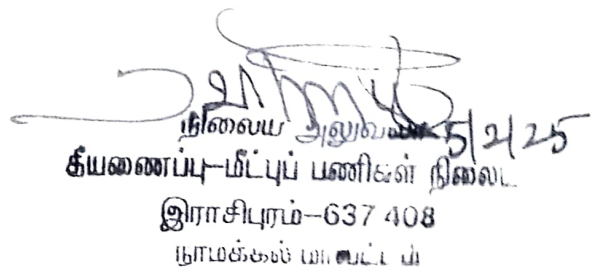 நிலைய அலுவலர் 5/2/25
தீயணைப்பு-மீட்புப் பணிகள் நிலைய
இராசிபுரம்-637 408
நாமக்கல் மாவட்டம்